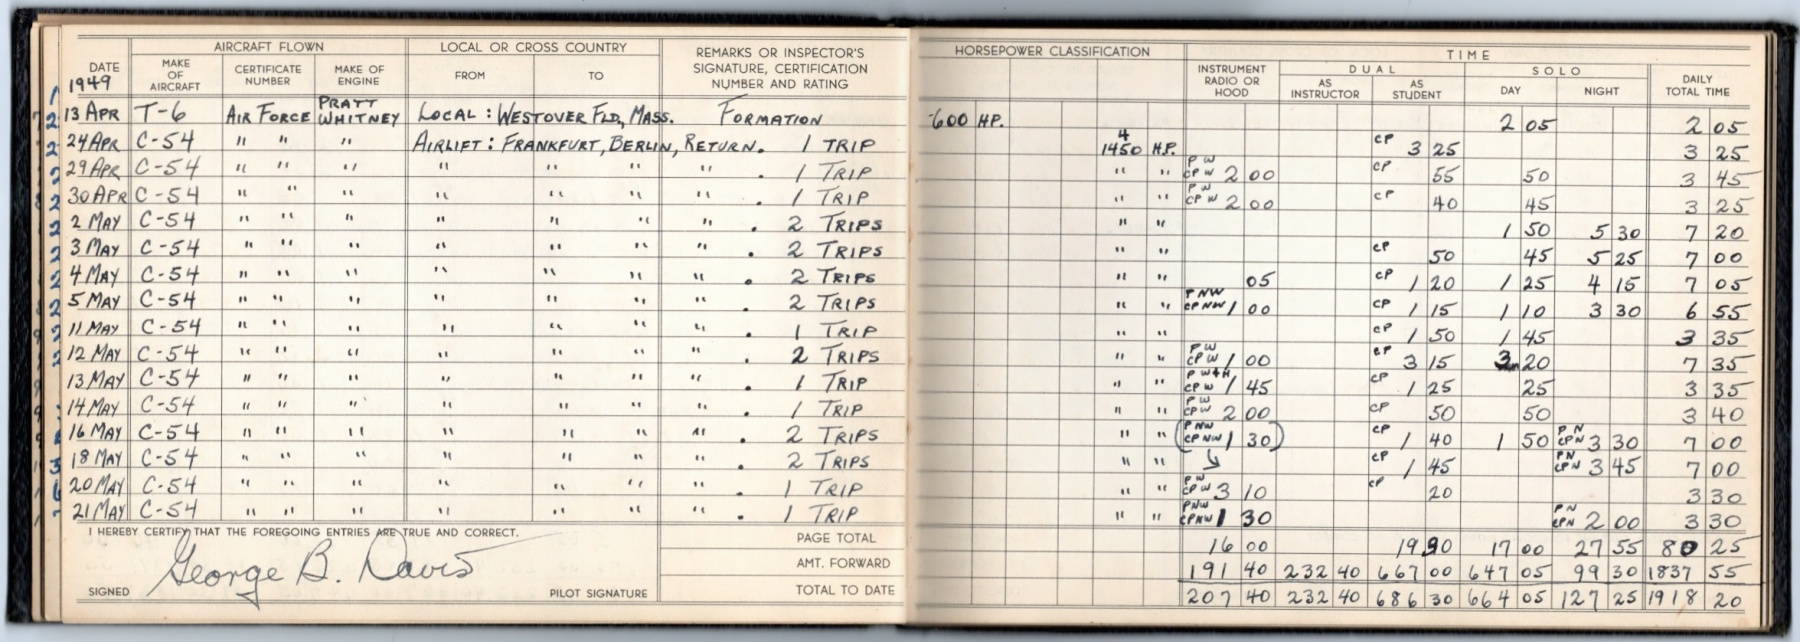 AIRCRAFT FLOWN LOCAL OR CROSS COUNTRY REMARKS OR INSPECTOR'S SIGNATURE, CERTIFICATION NUMBER AND RATING HORSEPOWER CLASSIFICATION TIME
DATE 1949 MAKE OF AIRCRAFT CERTIFICATE NUMBER MAKE OF ENGINE FROM TO INSTRUMENT RADIO OR HOOD DUAL SOLO DAILY TOTAL TIME
AS INSTRUCTOR AS STUDENT DAY NIGHT
13 APR T-6 AIR FORCE PRATT WHITNEY LOCAL : WESTOVER FLD, MASS. FORMATION 600 HP. 2 05 2 05
24 APR C-54 " " " AIRLIFT : FRANKFURT, BERLIN, RETURN. 1 TRIP 4 1450 H.P. CP 3 25 3 25
29 APR C-54 " " " " " " " . 1 TRIP " " P W CP W 2 00 CP 55 50 3 45
30 APR C-54 " " " " " " " . 1 TRIP " " P W CP W 2 00 CP 40 45 3 25
2 MAY C-54 " " " " " " " . 2 TRIPS " " 1 50 5 30 7 20
3 MAY C-54 " " " " " " " . 2 TRIPS " " CP 50 45 5 25 7 00
4 MAY C-54 " " " " " " " . 2 TRIPS " " 05 CP 1 20 1 25 4 15 7 05
5 MAY C-54 " " " " " " " . 2 TRIPS " " P NW CP NW 1 00 CP 1 15 1 10 3 30 6 55
11 MAY C-54 " " " " " " " . 1 TRIP " " CP 1 50 1 45 3 35
12 MAY C-54 " " " " " " " . 2 TRIPS " " P W CP W 1 00 CP 3 15 3 20 7 35
13 MAY C-54 " " " " " " " . 1 TRIP " " P W+H CP W 1 45 CP 1 25 25 3 35
14 MAY C-54 " " " " " " " . 1 TRIP " " P W CP W 2 00 CP 50 50 3 40
16 MAY C-54 " " " " " " " . 2 TRIPS " " (P NW CP NW 1 30) CP 1 40 1 50 P N CP N 3 30 7 00
18 MAY C-54 " " " " " " " . 2 TRIPS " " CP 1 45 P N CP N 3 45 7 00
20 MAY C-54 " " " " " " " . 1 TRIP " " P W CP W 3 10 CP 20 3 30
21 MAY C-54 " " " " " " " . 1 TRIP " " P NW CP NW 1 30 P N CP N 2 00 3 30
I HEREBY CERTIFY THAT THE FOREGOING ENTRIES ARE TRUE AND CORRECT. PAGE TOTAL 16 00 19 30 17 00 27 55 80 25
George B. Davis AMT. FORWARD 191 40 232 40 667 00 647 05 99 30 1837 55
SIGNED PILOT SIGNATURE TOTAL TO DATE 207 40 232 40 686 30 664 05 127 25 1918 20